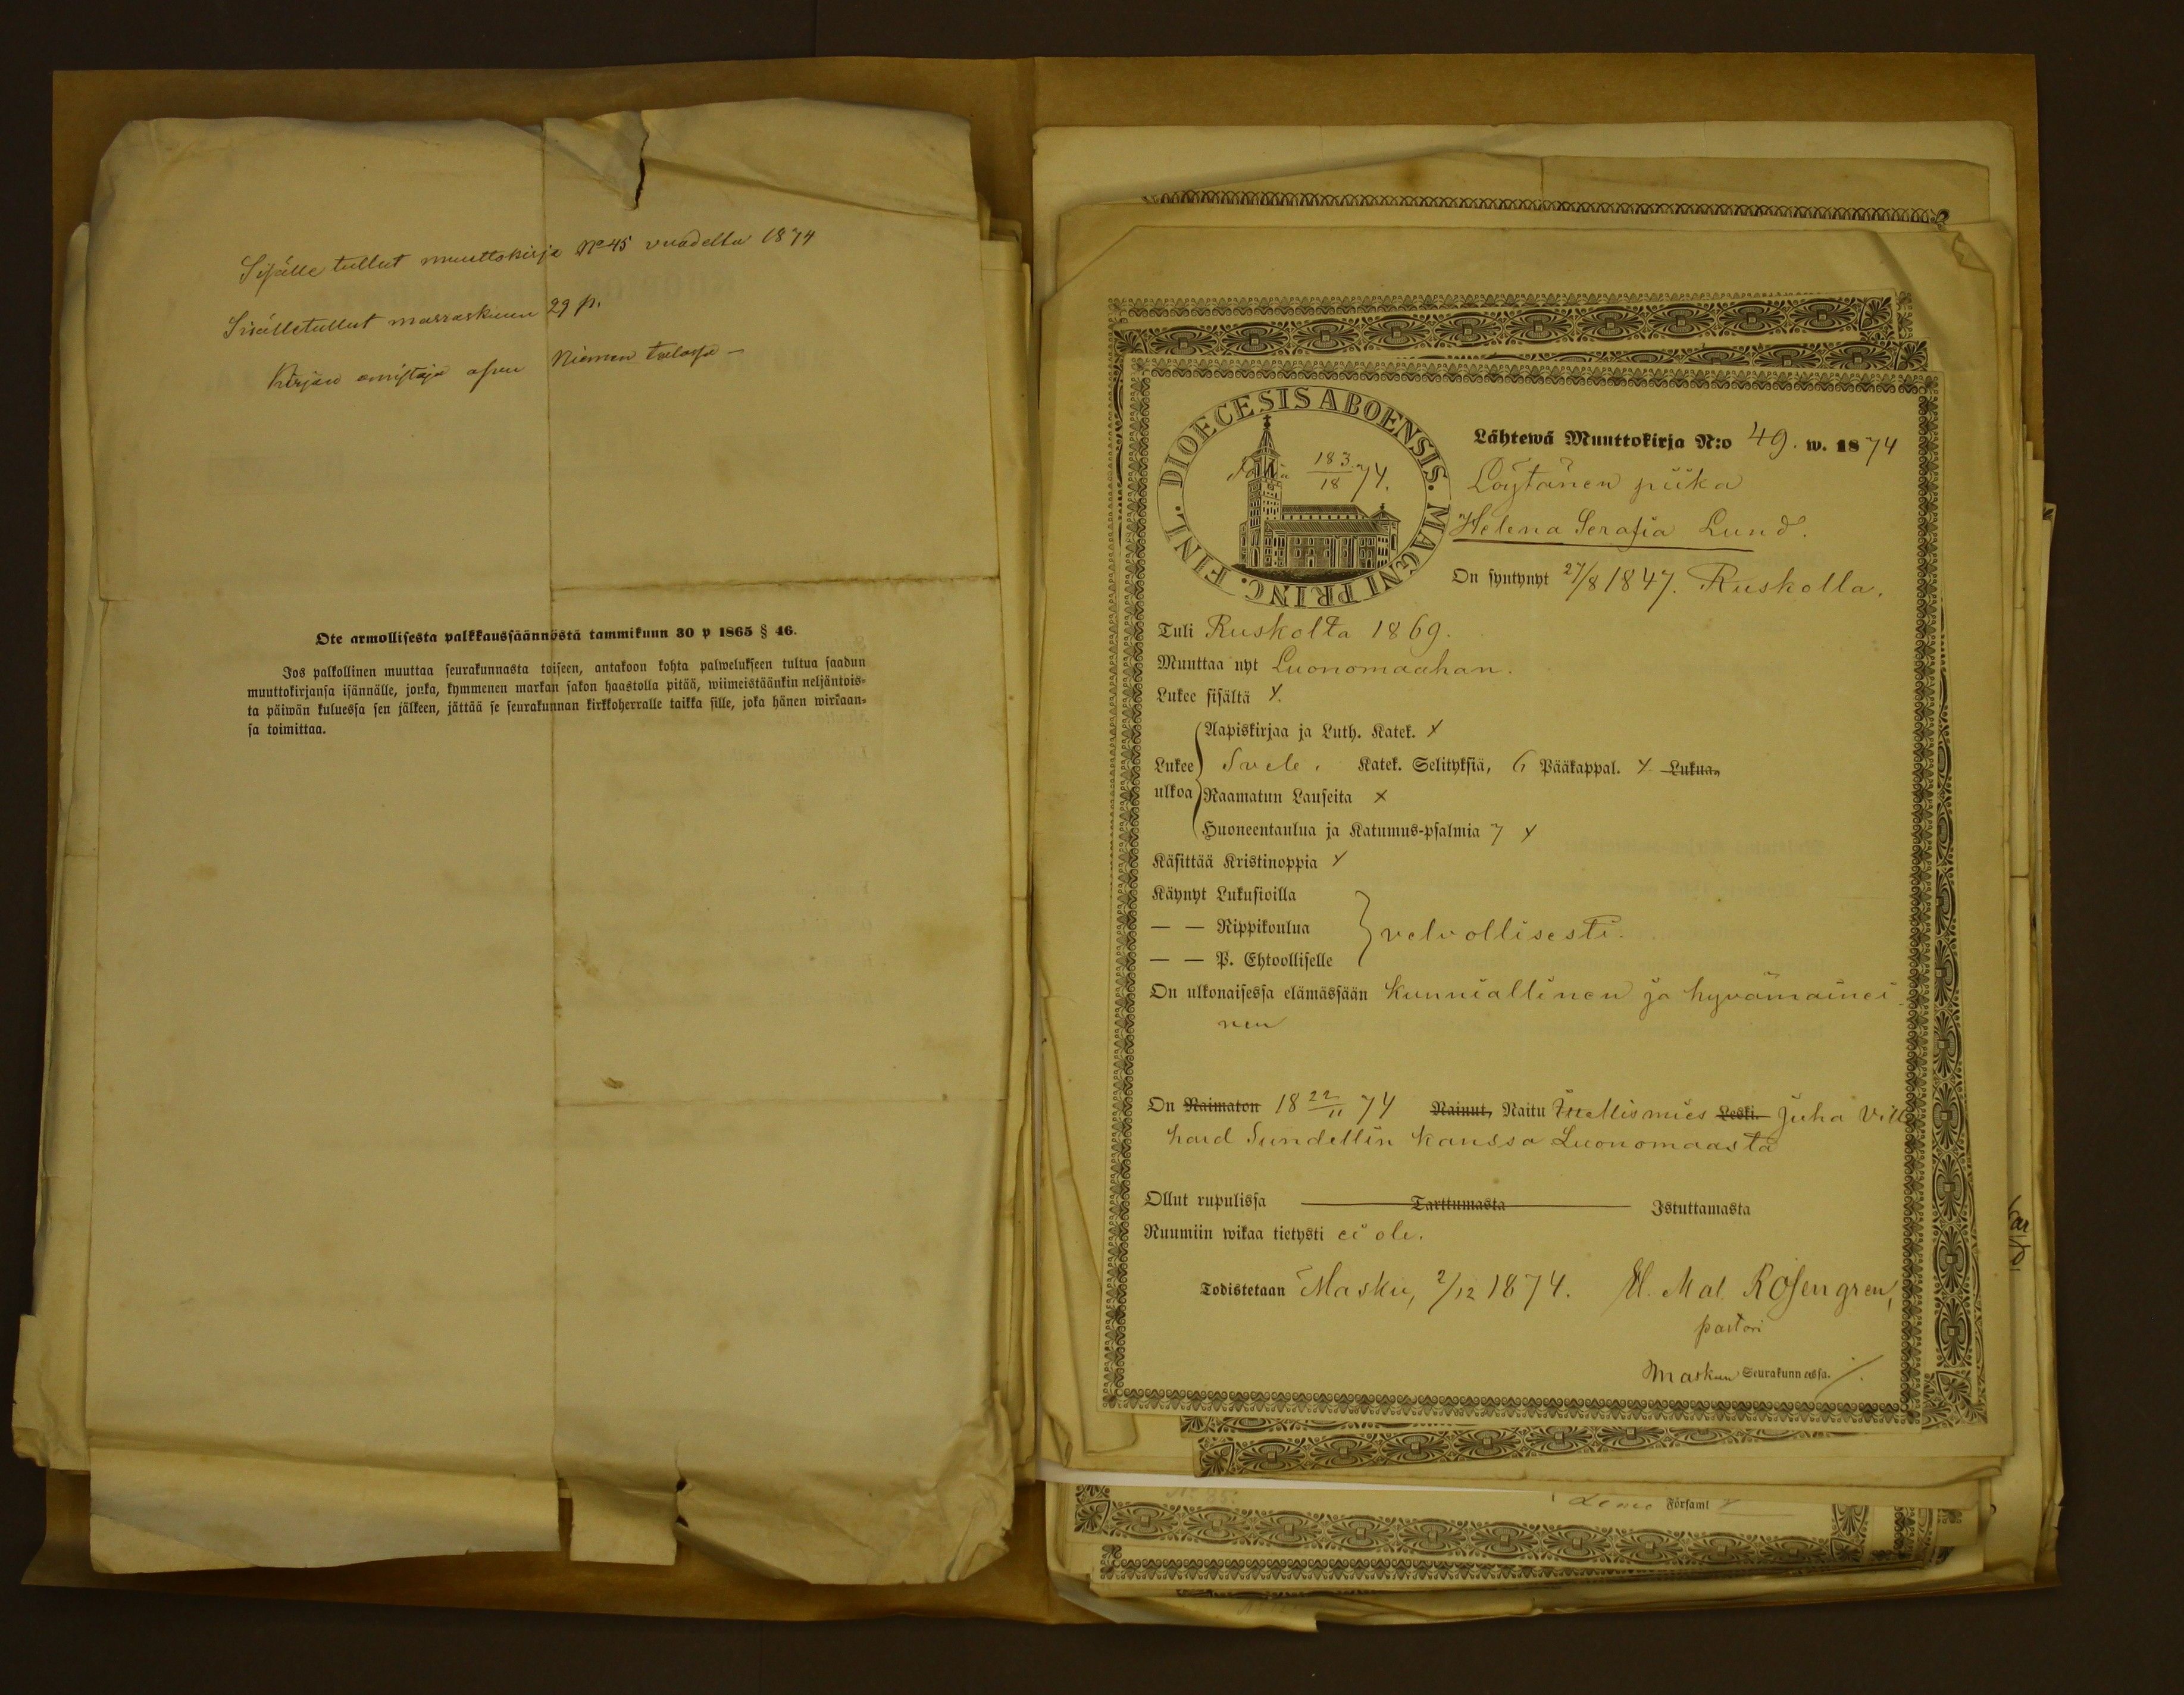 Sisälle tullut muuttokirja No 45 vuodelta 1874
Sisälletullut marraskuun 29 p.
Kirjan omistaja asuu Niemen talossa —
Ote armollisesta palkkaussäännöstä tammikuun 30 p 1865 § 46.
Jos palkollinen muuttaa seurakunnasta toiseen, antakoon kohta palwelukseen tultua saadun
muuttokirjansa isännälle, jonka, kymmenen markan sakon haastolla pitää, wiimeistäänkin neljäntois-
ta päiwän kuluessa sen jälkeen, jättää se seurakunnan kirkkoherralle taikka sille, joka hänen wirkaan-
sa toimittaa.
DIOECESIS ABOENSIS. MAGNI PRINC. FINL.
183
18 74.
Lähtewä Muuttokirja N:o 49. w. 1874
Löytänen piika
Helena Serafia Lund.
On syntynyt 27/8 1847. Ruskolla.
Tuli Ruskolta 1869.
Muuttaa nyt Luonomaahan.
Lukee sisältä x.
Aapiskirjaa ja Luth. Katek. x
Lukee ulkoa Svele. Katek. Selityksiä, 6 Pääkappal. x Lukua,
Raamatun Lauseita x
Huoneentaulua ja Katumus-psalmia 7 x
Käsittää Kristinoppia x
Käynyt Lukusioilla
— — Rippikoulua velvollisesti.
— — P. Ehtoolliselle
On ulkonaisessa elämässään kunniallinen ja hyvämainei-
nen
On Naimaton 18 22/11 74 Nainut, Naitu Itellismies Leski. Juha Vill
hard Sundellin kanssa Luonomaasta
Ollut rupulissa Tarttumasta Istuttamasta
Ruumiin wikaa tietysti ei ole.
Todistetaan Masku, 2/12 1874. Mal. Rosengren,
pastori
Maskun Seurakunnassa.
Lemo Församl